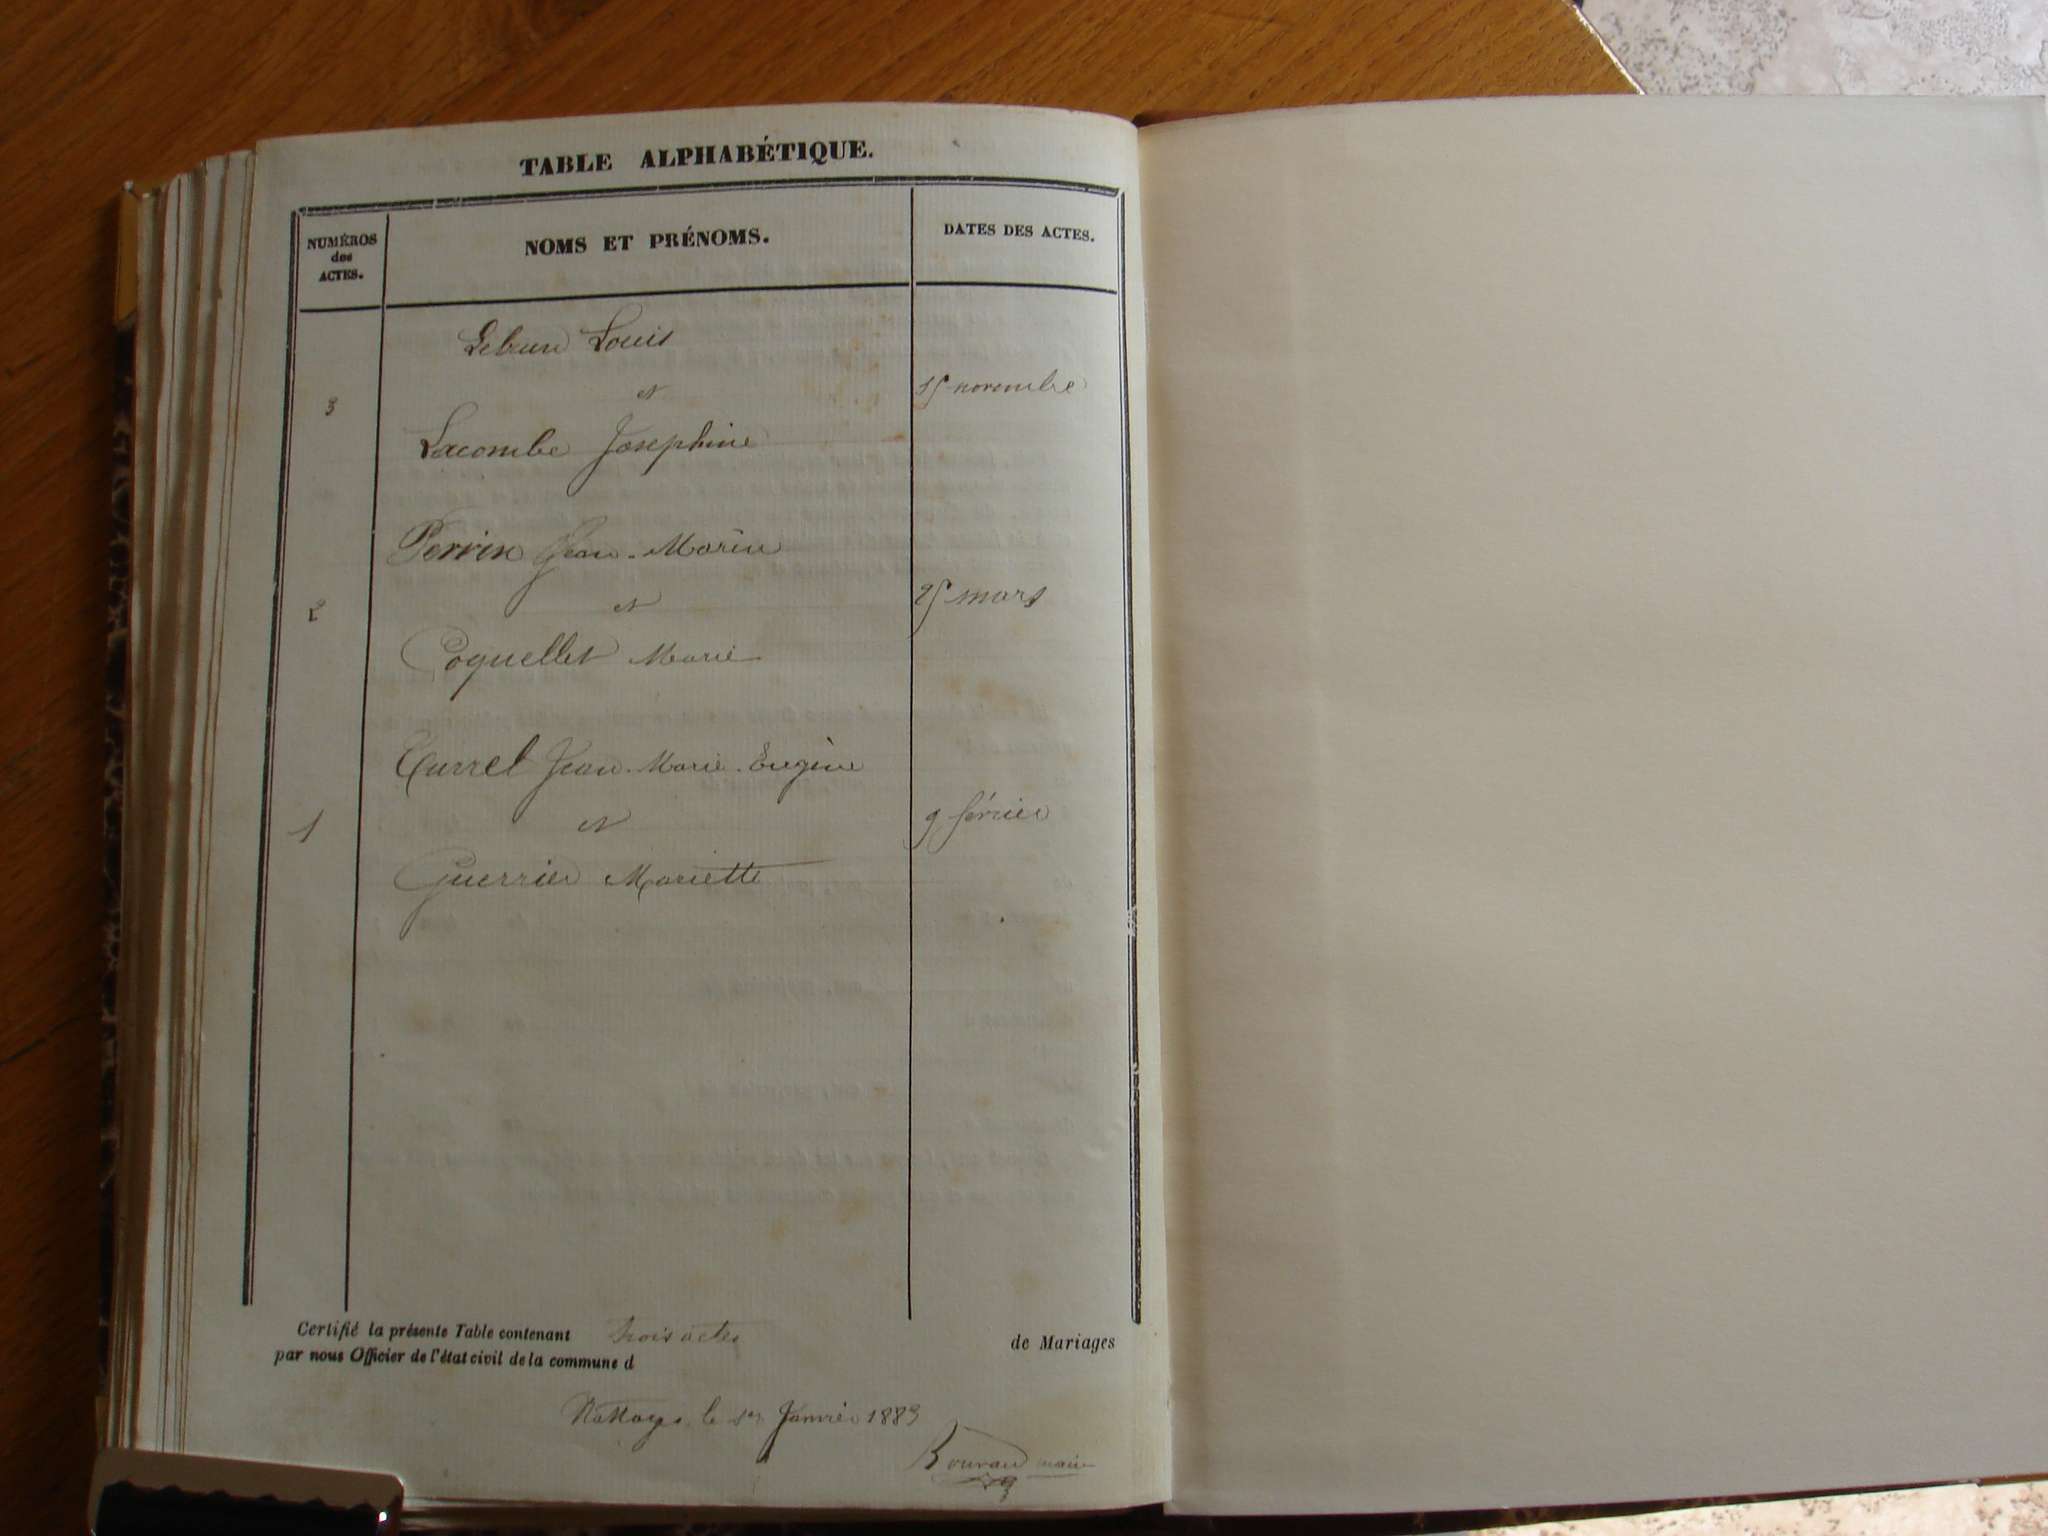 TABLE ALPHABÉTIQUE.
NUMÉROS
des
ACTES.
NOMS ET PRÉNOMS.
DATES DES ACTES.
Lebrun Louis
3 et 15 novembre
Lacombe Josephine
Perrin Jean-Marie
2 et 25 mars
Coquellet Marie
Curret Jean-Marie-Eugène
1 et 9 février
Guerrier Mariette
Certifié la présente Table contenant trois actes de Mariages
par nous Officier de l'état civil de la commune d
Nattages le 1er Janvier 1883
maire